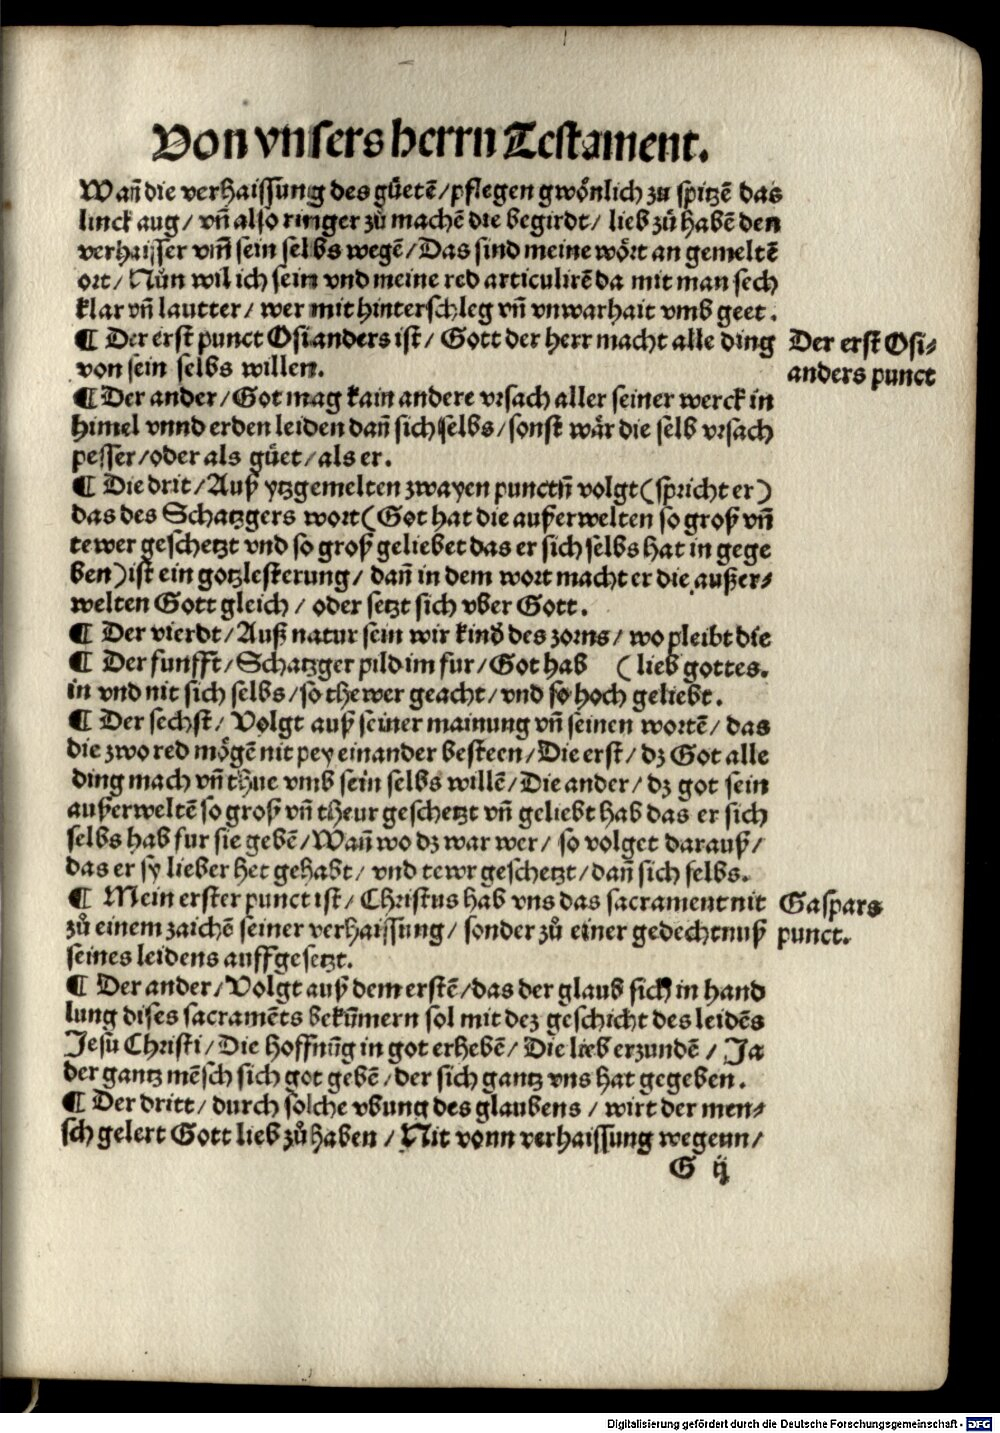 Von vnsers herrn Testament.
Wañ die verhaissung des gůetē/pflegen gwönlich zu spitzē das
linck aug/ vñ also ringer zů machē die begirdt/ lieb zů habē den
verhaisser vm̃ sein selbs wegē/Das sind meine wört an gemeltē
ort/ Nůn wil ich sein vnd meine red articulirē da mit man sech
klar vñ lautter/ wer mit hinterschleg vñ vnwarhait vmb geet.
¶ Der erst punct Osianders ist/ Gott der herr macht alle ding
von sein selbs willen.
Der erst Osi⸗
anders punct
¶ Der ander/Got mag kain andere vrsach aller seiner werck in
himel vnnd erden leiden dañ sich selbs/sonst wår die selb vrsach
pesser/oder als gůet/als er.
¶ Die drit/Auß ytzgemelten zwayen punctñ volgt(spricht er)
das des Schatzgers wort(Got hat die auserwelten so groß vñ
tewer geschetzt vnd so groß geliebet das er sich selbs hat in gege
ben)ist ein gotzlesterung/ dañ in dem wort macht er die außer⸗
welten Gott gleich/ oder setzt sich vber Gott.
¶ Der vierdt/Auß natur sein wir kind des zorns/ wo pleibt die
¶ Der funfft/Schatzger pild im fur/Got hab (lieb gottes.
in vnd nit sich selbs/so thewer geacht/vnd so hoch geliebt.
¶ Der sechst/ Volgt auß seiner mainung vñ seinen wortē/ das
die zwo red mögē nit pey einander besteen/Die erst/ dz Got alle
ding mach vñ thue vmb sein selbs willē/Die ander/ dz got sein
außerweltē so groß vñ theur geschetzt vñ geliebt hab das er sich
selbs hab fur sie gebē/Wañ wo dz war wer/ so volget darauß/
das er sy lieber het gehabt/ vnd tewr geschetzt/dañ sich selbs.
¶ Mein erster punct ist/ Christus hab vns das sacrament nit
zů einem zaichē seiner verhaissung/ sonder zů einer gedechtnuß
seines leidens auffgesetzt.
Gaspars
punct.
¶ Der ander/Volgt auß dem erstē/das der glaub sich in hand
lung dises sacramēts bekūmern sol mit dez geschicht des leidēs
Jesu Christi/Die hoffnũg in got erhebē/Die lieb erzundē/ Ja
der gantz mēsch sich got gebē/der sich gantz vns hat gegeben.
¶ Der dritt/ durch solche vbung des glaubens/ wirt der men⸗
sch gelert Gott lieb zů haben/Nit vonn verhaissung wegenn/
G ij
Digitalisierung gefördert durch die Deutsche Forschungsgemeinschaft - DFG